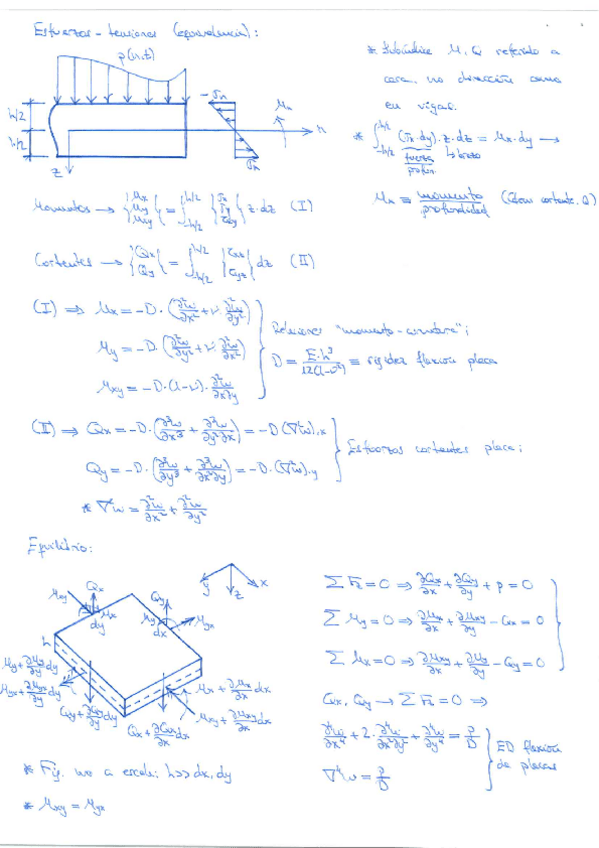 Esfuerzos - tensiones (equivalencia):
p(x,t)
h/2
h/2
z
-σx
σx
Mx
x
* Subíndice M, Q referido a
cara, no dirección como
en vigas.
* ∫_{-h/2}^{h/2} (σx·dy)·z·dz = Mx·dy →
fuerza
brazo
Mx ≡ momento/profundidad (idem cortante, Q)
Momentos → {Mx My Mxy} = ∫_{-h/2}^{h/2} {σx σy τxy} z·dz (I)
Cortantes → {Qx Qy} = ∫_{-h/2}^{h/2} {τxz τyz} dz (II)
(I) ⇒ Mx = -D·(∂²w/∂x² + ν·∂²w/∂y²)
My = -D·(∂²w/∂y² + ν·∂²w/∂x²)
Mxy = -D·(1-ν)·∂²w/∂x∂y
Relaciones "momento-curvatura";
D = E·h³/12(1-ν²) ≡ rigidez flexión placa
(II) ⇒ Qx = -D·(∂³w/∂x³ + ∂³w/∂y²∂x) = -D(∇²w),x
Qy = -D·(∂³w/∂y³ + ∂³w/∂x²∂y) = -D·(∇²w),y
Esfuerzos cortantes placa;
* ∇²w = ∂²w/∂x² + ∂²w/∂y²
Equilibrio:
x
y
z
Qx
Mxy
Mx
dy
Qy
dx
Myx
h
My + ∂My/∂y dy
Myx + ∂Myx/∂y dy
Qy + ∂Qy/∂y dy
Qx + ∂Qx/∂x dx
Mx + ∂Mx/∂x dx
Mxy + ∂Mxy/∂x dx
Σ Fz = 0 ⇒ ∂Qx/∂x + ∂Qy/∂y + p = 0
Σ My = 0 ⇒ ∂Mx/∂x + ∂Mxy/∂y - Qx = 0
Σ Mx = 0 ⇒ ∂Mxy/∂x + ∂My/∂y - Qy = 0
Qx, Qy → Σ Fz = 0 ⇒
∂⁴w/∂x⁴ + 2·∂⁴w/∂x²∂y² + ∂⁴w/∂y⁴ = p/D
∇⁴w = p/D
ED flexión
de placas
* Fig. no a escala: h>> dx, dy
* Mxy = Myx